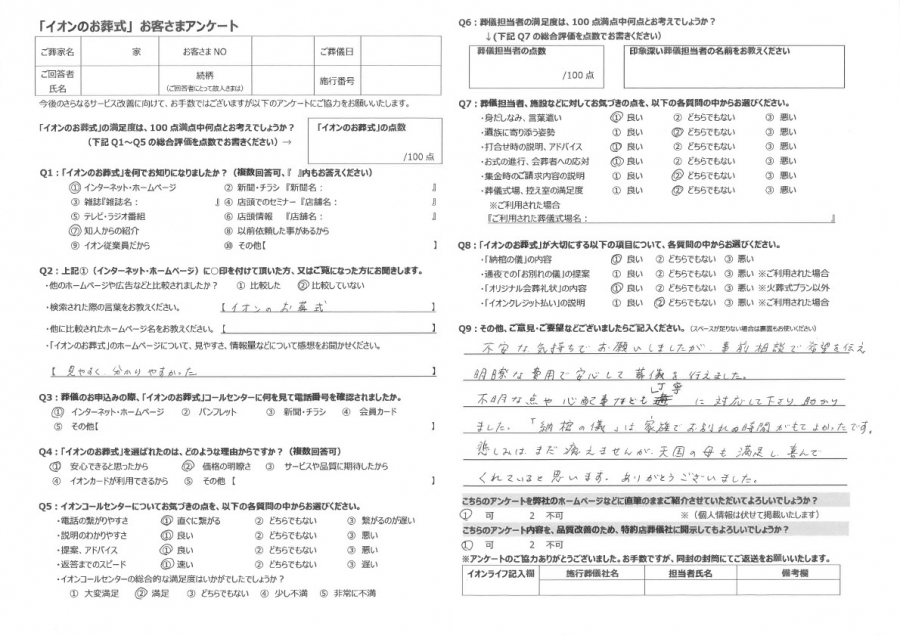 「イオンのお葬式」お客さまアンケート
ご葬家名 家 お客さまNO ご葬儀日
ご回答者氏名 続柄（ご回答者にとって故人さまは） 施行番号
今後のさらなるサービス改善に向けて、お手数ではございますが以下のアンケートにご協力をお願いいたします。
「イオンのお葬式」の満足度は、100点満点中何点とお考えでしょうか？
（下記Q1～Q5の総合評価を点数でお書きください）→
「イオンのお葬式」の点数
/100点
Q1：「イオンのお葬式」を何でお知りになりましたか？（複数回答可、『 』内もお答えください）
① インターネット・ホームページ ② 新聞・チラシ『新聞名： 』
③ 雑誌『雑誌名： 』④ 店頭でのセミナー『店舗名： 』
⑤ テレビ・ラジオ番組 ⑥ 店頭情報 『店舗名： 』
⑦ 知人からの紹介 ⑧ 以前依頼した事があるから
⑨ イオン従業員だから ⑩ その他【 】
Q2：上記①（インターネット・ホームページ）に○印を付けて頂いた方、又はご覧になった方にお聞きします。
・他のホームページや広告などと比較されましたか？ ① 比較した ② 比較していない
・検索された際の言葉をお教えください。 【 イオンのお葬式 】
・他に比較されたホームページ名をお教えください。【 】
・「イオンのお葬式」のホームページについて、見やすさ、情報量などについて感想をお聞かせください。
【 見やすく、分かりやすかった 】
Q3：葬儀のお申込みの際、「イオンのお葬式」コールセンターに何を見て電話番号を確認されましたか。
① インターネット・ホームページ ② パンフレット ③ 新聞・チラシ ④ 会員カード
⑤ その他【 】
Q4：「イオンのお葬式」を選ばれたのは、どのような理由からですか？（複数回答可）
① 安心できると思ったから ② 価格の明瞭さ ③ サービスや品質に期待したから
④ イオンカードが利用できるから ⑤ その他 【 】
Q5：イオンコールセンターについてお気づきの点を、以下の各質問の中からお選びください。
・電話の繋がりやすさ ① 直ぐに繋がる ② どちらでもない ③ 繋がるのが遅い
・説明のわかりやすさ ① 良い ② どちらでもない ③ 悪い
・提案、アドバイス ① 良い ② どちらでもない ③ 悪い
・返答までのスピード ① 速い ② どちらでもない ③ 遅い
・イオンコールセンターの総合的な満足度はいかがでしたでしょうか？
① 大変満足 ② 満足 ③ どちらでもない ④ 少し不満 ⑤ 非常に不満
Q6：葬儀担当者の満足度は、100点満点中何点とお考えでしょうか？
↓(下記Q7の総合評価を点数でお書きください)
葬儀担当者の点数
/100点
印象深い葬儀担当者の名前をお教えください
Q7：葬儀担当者、施設などに対してお気づきの点を、以下の各質問の中からお選びください。
・身だしなみ、言葉遣い ① 良い ② どちらでもない ③ 悪い
・遺族に寄り添う姿勢 ① 良い ② どちらでもない ③ 悪い
・打合せ時の説明、アドバイス ① 良い ② どちらでもない ③ 悪い
・お式の進行、会葬者への応対 ① 良い ② どちらでもない ③ 悪い
・集金時のご請求内容の説明 ① 良い ② どちらでもない ③ 悪い
・葬儀式場、控え室の満足度 ① 良い ② どちらでもない ③ 悪い
※ご利用された場合
『ご利用された葬儀式場名： 』
Q8：「イオンのお葬式」が大切にする以下の項目について、各質問の中からお選びください。
・「納棺の儀」の内容 ① 良い ② どちらでもない ③ 悪い
・通夜での「お別れの儀」の提案 ① 良い ② どちらでもない ③ 悪い ※ご利用された場合
・「オリジナル会葬礼状」の内容 ① 良い ② どちらでもない ③ 悪い ※火葬式プラン以外
・「イオンクレジット払い」の説明 ① 良い ② どちらでもない ③ 悪い ※ご利用された場合
Q9：その他、ご意見・ご要望などございましたらご記入ください。（スペースが足りない場合は裏面もお使いください）
不安な気持ちでお願いしましたが、事前相談で希望を伝え
明瞭な費用で安心して葬儀を行えました。
不明な点や心配事なども丁寧に対応して下さり、助かり
ました。「納棺の儀」は家族でお別れの時間がもてよかったです。
悲しみはまだ癒えませんが、天国の母も満足し、喜んで
くれていると思います。ありがとうございました。
こちらのアンケートを弊社のホームページなどに直筆のままご紹介させていただいてよろしいでしょうか？
1 可 2 不可 ※（個人情報は伏せて掲載いたします）
こちらのアンケート内容を、品質改善のため、特約店葬儀社に開示してもよろしいでしょうか？
1 可 2 不可
※アンケートのご協力ありがとうございました。お手数ですが、同封の封筒にてご返送をお願いいたします。
イオンライフ記入欄 施行葬儀社名 担当者氏名 備考欄